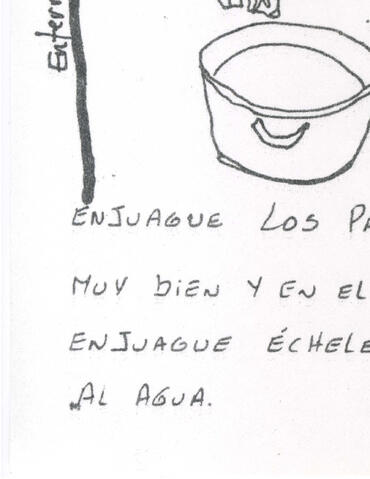 ENJUAGUE LOS PA
MUY BIEN Y EN EL
ENJUAGUE ÉCHELE
AL AGUA.